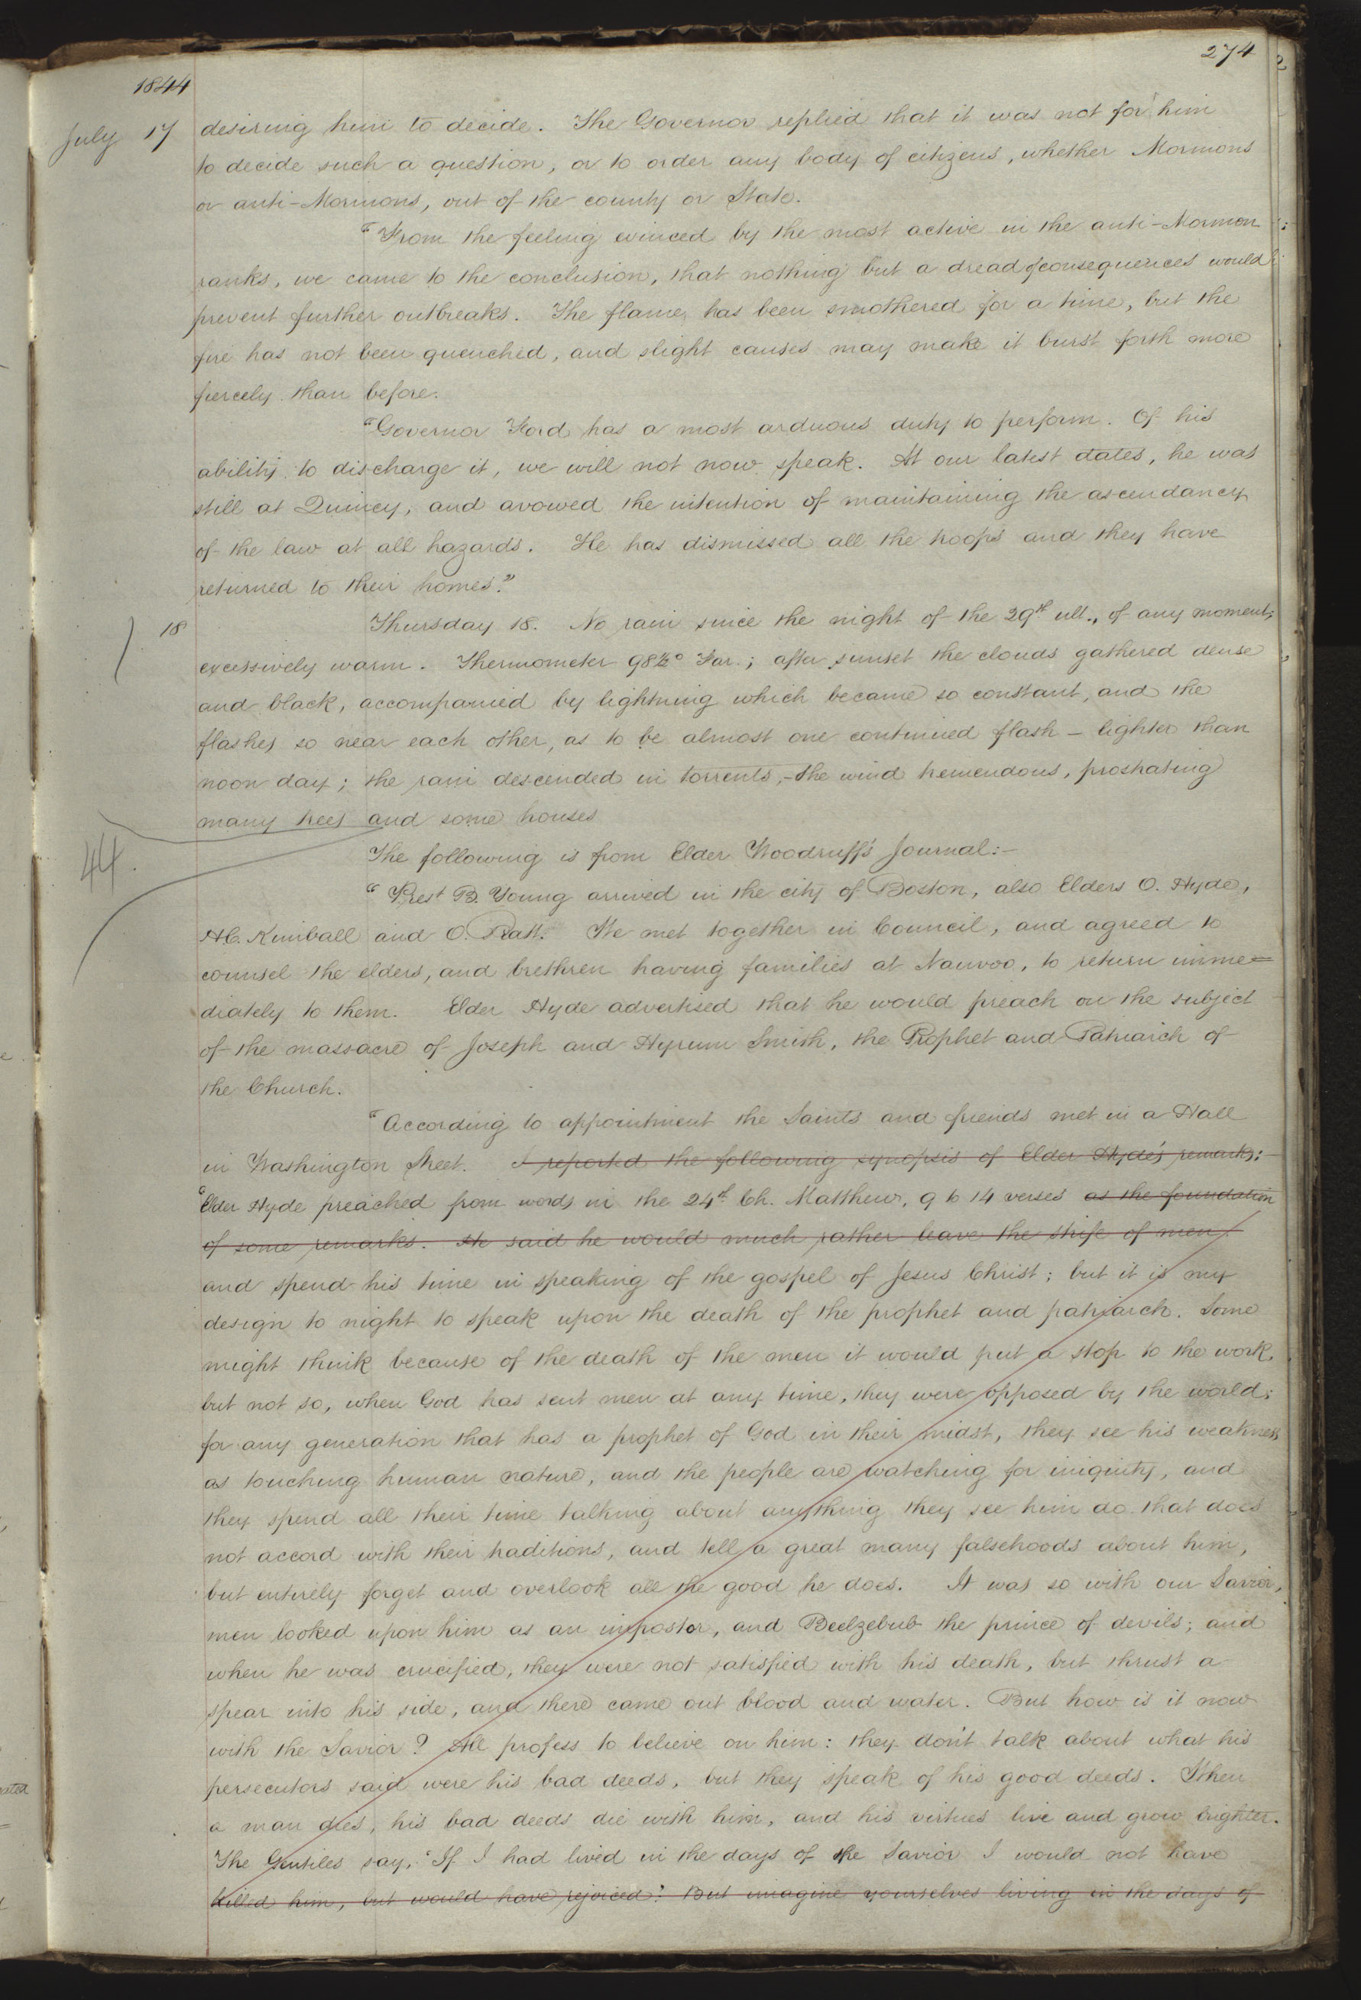 274
1844
July 17 desiring him to decide. The Governor replied that it was not for him
to decide such a question, or to order any body of citizens, whether Mormons
or anti-Mormons, out of the county or State.
"From the feeling evinced by the most active in the anti-Mormon
ranks, we came to the conclusion, that nothing but a dread of consequences would
prevent further outbreaks. The flame has been smothered for a time, but the
fire has not been quenched, and slight causes may make it burst forth more
fiercely than before.
"Governor Ford has a most arduous duty to perform. Of his
ability to discharge it, we will not now speak. At our latest dates, he was
still at Quincy, and avowed the intention of maintaining the ascendancy
of the law at all hazards. He has dismissed all the troops and they have
returned to their homes."
18 Thursday 18. No rain since the night of the 29th ult., of any moment;
excessively warm. Thermometer 98½° Far.; after sunset the clouds gathered dense
and black, accompanied by lightning which became so constant, and the
flashes so near each other, as to be almost one continued flash – lighter than
noon day; the rain descended in torrents,–the wind tremendous, prostrating
many trees and some houses
44.
The following is from Elder Woodruff's Journal:–
"Prest B. Young arrived in the city of Boston, also Elders O. Hyde,
H.C. Kimball and O. Pratt. We met together in Council, and agreed to
counsel the elders, and brethren having families at Nauvoo, to return imme=
diately to them. Elder Hyde advertised that he would preach on the subject
of the massacre of Joseph and Hyrum Smith, the Prophet and Patriarch of
the Church.
"According to appointment the Saints and friends met in a Hall
in Washington Street. I reported the following synopsis of Elder Hyde's remarks:–
"Elder Hyde preached from words in the 24th Ch. Matthew, 9 to 14 verses as the foundation
of some remarks. He said he would much rather leave the strife of men,
and spend his time in speaking of the gospel of Jesus Christ; but it is my
design to night to speak upon the death of the prophet and patriarch. Some
might think because of the death of the men it would put a stop to the work,
but not so, when God has sent men at any time, they were opposed by the world;
for any generation that has a prophet of God in their midst, they see his weakness
as touching human nature, and the people are watching for iniquity, and
they spend all their time talking about anything they see him do that does
not accord with their traditions, and tell a great many falsehoods about him,
but entirely forget and overlook all the good he does. It was so with our Savior,
men looked upon him as an impostor, and Beelzebub the prince of devils; and
when he was crucified, they were not satisfied with his death, but thrust a
spear into his side, and there came out blood and water. But how is it now
with the Savior? All profess to believe on him: they don't talk about what his
persecutors said were his bad deeds, but they speak of his good deeds. When
a man dies, his bad deeds die with him, and his virtues live and grow brighter.
The Gentiles say, 'If I had lived in the days of the Savior I would not have
killed him, but would have rejoiced.' But imagine yourselves living in the days of